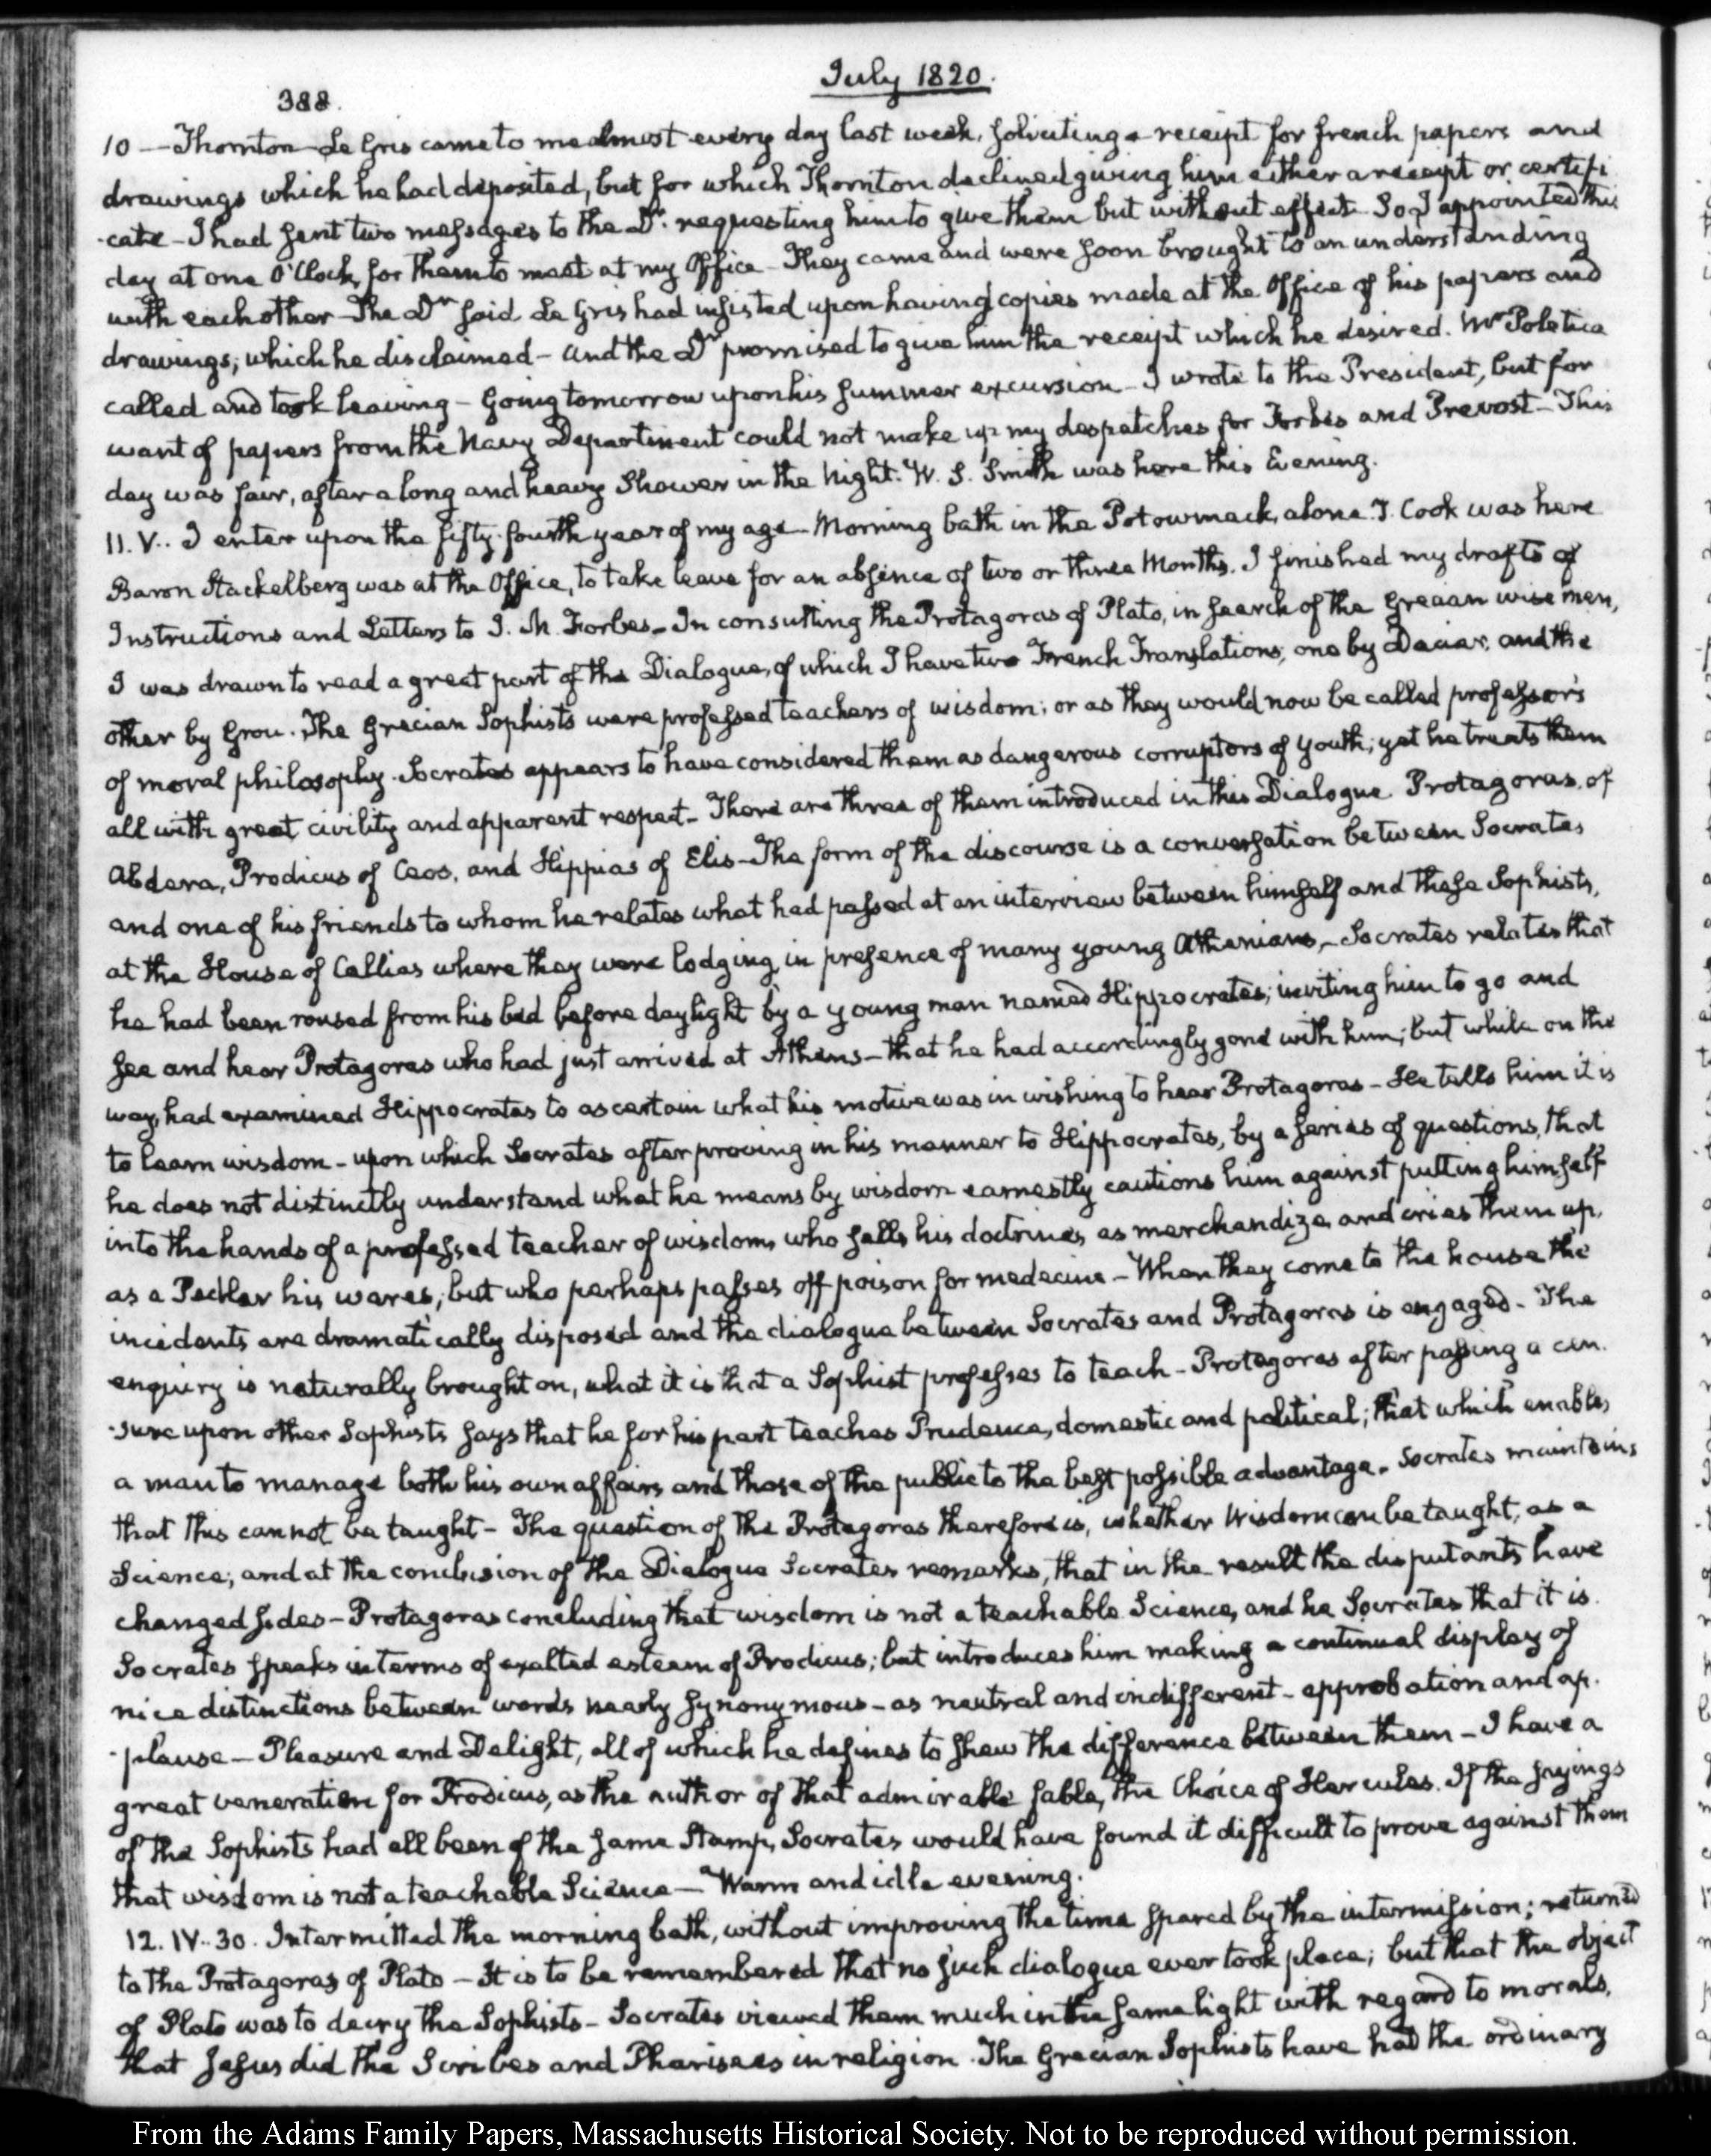 July 1820.
388.
10 — Thornton — Le Gris came to me almost every day last week, soliciting a receipt for french papers and
drawings which he had deposited, but for which Thornton declined giving him either a receipt or certifi
-cate — I had sent two messages to the Dr. requesting him to give them but without effect — So I appointed this
day at one O'Clock, for them to meet at my Office — They came and were soon brought to an understanding
with each other — The Dr. said Le Gris had insisted upon having copies made at the Office of his papers and
drawings; which he disclaimed — and the Dr. promised to give him the receipt which he desired. Mr Poletica
called and took leaving — Going tomorrow upon his summer excursion — I wrote to the President, but for
want of papers from the Navy Department could not make up my despatches for Forbes and Prevost — This
day was fair, after a long and heavy Shower in the Night. W. S. Smith was here this Evening.
11. V.. I enter upon the fifty-fourth year of my age — Morning bath in the Potowmack, alone. J. Cook was here
Baron Stackelberg was at the Office, to take leave for an absence of two or three Months. I finished my drafts of
Instructions and Letters to J. M. Forbes — In consulting the Protagoras of Plato, in search of the Grecian wise men,
I was drawn to read a great part of the Dialogue, of which I have two French Translations; one by Dacier, and the
other by Grou. The Grecian Sophists were professed teachers of wisdom; or as they would now be called professors
of moral philosophy. Socrates appears to have considered them as dangerous corruptors of youth; yet he treats them
all with great civility and apparent respect — There are three of them introduced in this Dialogue. Protagoras, of
Abdera, Prodicus of Ceos, and Hippias of Elis — The form of the discourse is a conversation between Socrates
and one of his friends to whom he relates what had passed at an interview between himself and these Sophists,
at the House of Callias where they were lodging, in presence of many young Athenians, — Socrates relates that
he had been roused from his bed before daylight by a young man named Hippocrates; inviting him to go and
see and hear Protagoras who had just arrived at Athens — that he had accordingly gone with him; but while on the
way, had examined Hippocrates to ascertain what his motive was in wishing to hear Protagoras — He tells him it is
to learn wisdom — upon which Socrates after proving in his manner to Hippocrates, by a series of questions, that
he does not distinctly understand what he means by wisdom earnestly cautions him against putting himself
into the hands of a professed teacher of wisdom, who sells his doctrines, as merchandize, and cries them up,
as a Pedlar his wares; but who perhaps passes off poison for medecine — When they come to the house the
incidents are dramatically disposed and the dialogue between Socrates and Protagoras is engaged — The
enquiry is naturally brought on, what it is that a Sophist professes to teach — Protagoras after passing a cen.
-sure upon other Sophists says that he for his part teaches Prudence, domestic and political; that which enables
a man to manage both his own affairs and those of the public to the best possible advantage. Socrates maintains
that this cannot be taught — The question of the Protagoras therefore is, whether Wisdom can be taught, as a
Science; and at the conclusion of the Dialogue Socrates remarks, that in the result the disputants have
changed sides — Protagoras concluding that wisdom is not a teachable Science, and he Socrates that it is.
Socrates speaks in terms of exalted esteem of Prodicus; but introduces him making a continual display of
nice distinctions between words nearly synonymous — as neutral and indifferent — approbation and ap.
-plause — Pleasure and Delight, all of which he defines to shew the difference between them — I have a
great veneration for Prodicus, as the author of that admirable fable, the Choice of Hercules. If the sayings
of the Sophists had all been of the same Stamp, Socrates would have found it difficult to prove against them
that wisdom is not a teachable Science — Warm and idle evening.
12. IV..30. Intermitted the morning bath, without improving the time spared by the intermission; returned
to the Protagoras of Plato — It is to be remembered that no such dialogue ever took place; but that the object
of Plato was to decry the Sophists — Socrates viewed them much in the same light with regard to morals,
that Jesus did the Scribes and Pharisees in religion. The Grecian Sophists have had the ordinary
From the Adams Family Papers, Massachusetts Historical Society. Not to be reproduced without permission.